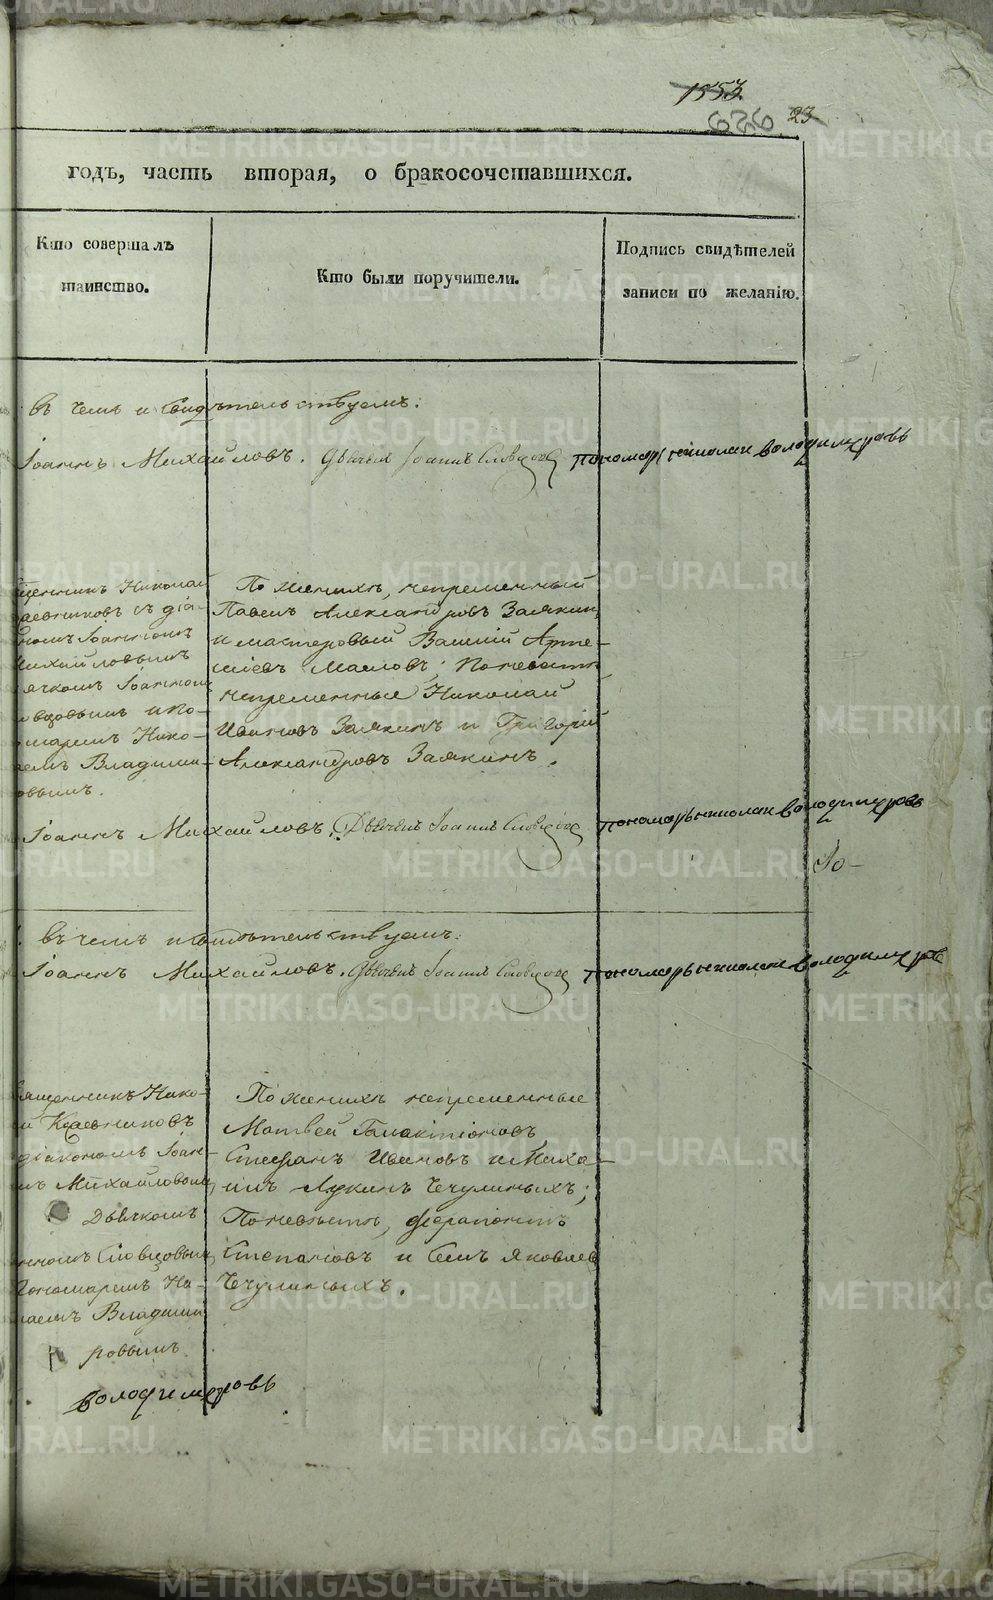 1553.
626 23
годъ, часть вторая, о бракосочетавшихся.
Кто совершалъ таинство.
Кто были поручители.
Подпись свидѣтелей записи по желанію.
въ чемъ и свидѣтельствуемъ:
Іоаннъ Михайловъ. Дьячекъ Іоаннъ Словцовъ пономарь николай володимеровъ
щенникъ Николай
съ діа-
номъ Іоанномъ
Михайловымъ
ячкомъ Іоанномъ
овцовымъ и по-
омаремъ Нико-
аемъ Владими-
овымъ.
По женихѣ, непременный
Павелъ Александровъ Заякин,
и мастеровый Василій Арте-
мьевъ Масловъ; По невестѣ
непременные Николай
Ивановъ Заякинъ и Григорій
Александровъ Заякинъ.
Іоаннъ Михайловъ. Дьячекъ Іоаннъ Словцовъ пономарь николай володимеровъ
Іо-
въ чемъ и свидѣтельствуемъ:
Іоаннъ Михайловъ. Дьячекъ Іоаннъ Словцовъ пономарь николай володимеровъ
ященникъ Нико-
й Краевниковъ
діакономъ Іоан-
мъ Михайловымъ
Дьячкомъ
нномъ Словцовымъ
Пономаремъ Ни-
лаемъ Владими
ровымъ
володимеровъ
По женихѣ непременные
Матвей Галактіоновъ,
Стефанъ Ивановъ и Миха-
илъ Лукинъ Чечулиныхъ;
По невѣстѣ, Ферапонтъ
Степановъ и Яковлев
Чечулиныхъ.
METRIKI.GASO-URAL.RU